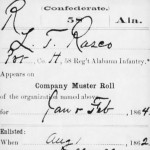 Confederate.
R 58 Ala.
L. T. Rasco
Co. H, 58 Reg't Alabama Infantry.
Appears on
Company Muster Roll
of the organization named above,
for Jan & Feb, 1864
Enlisted:
When Aug, 1862